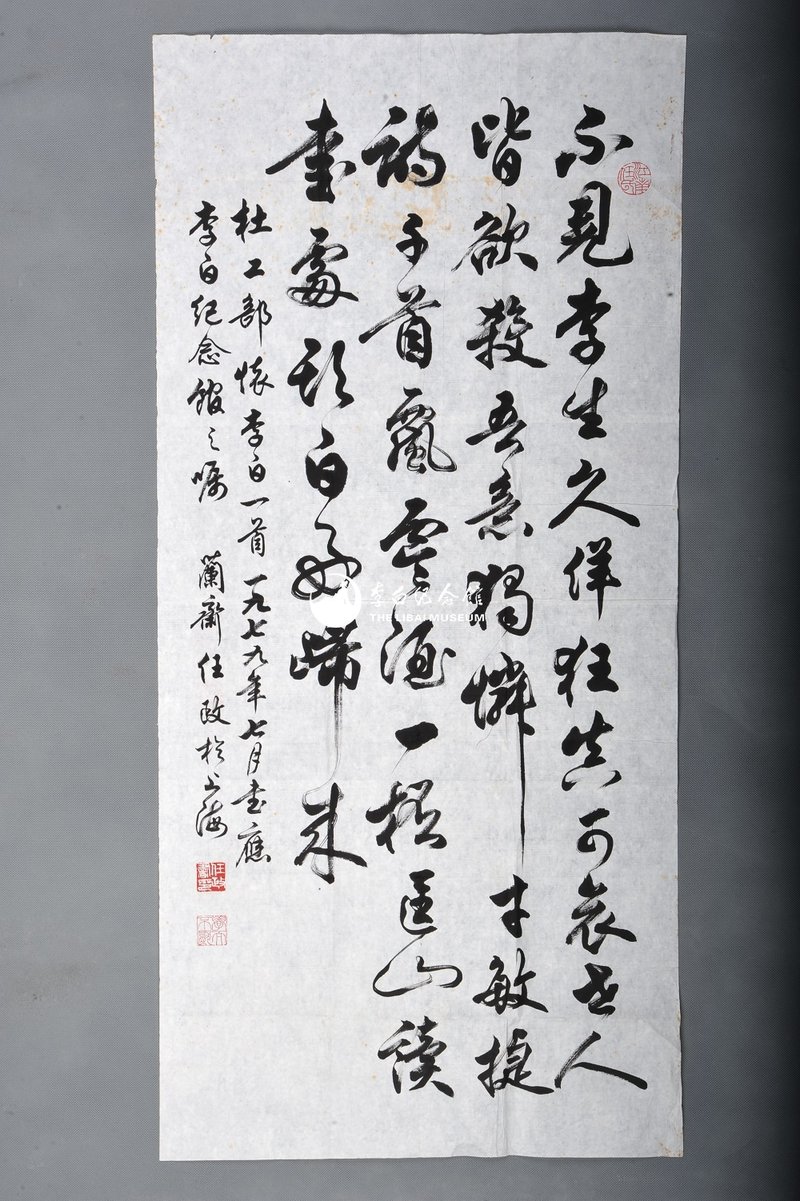 不見李生久佯狂真可哀世人
皆欲殺吾意獨憐才敏捷
詩千首飄零酒一杯匡山讀
書處頭白好歸來
杜工部懷李白一首一九七九年七月書應
李白紀念館之嘱 蘭齋任政於上海
李白纪念馆
THE LIBAI MUSEUM